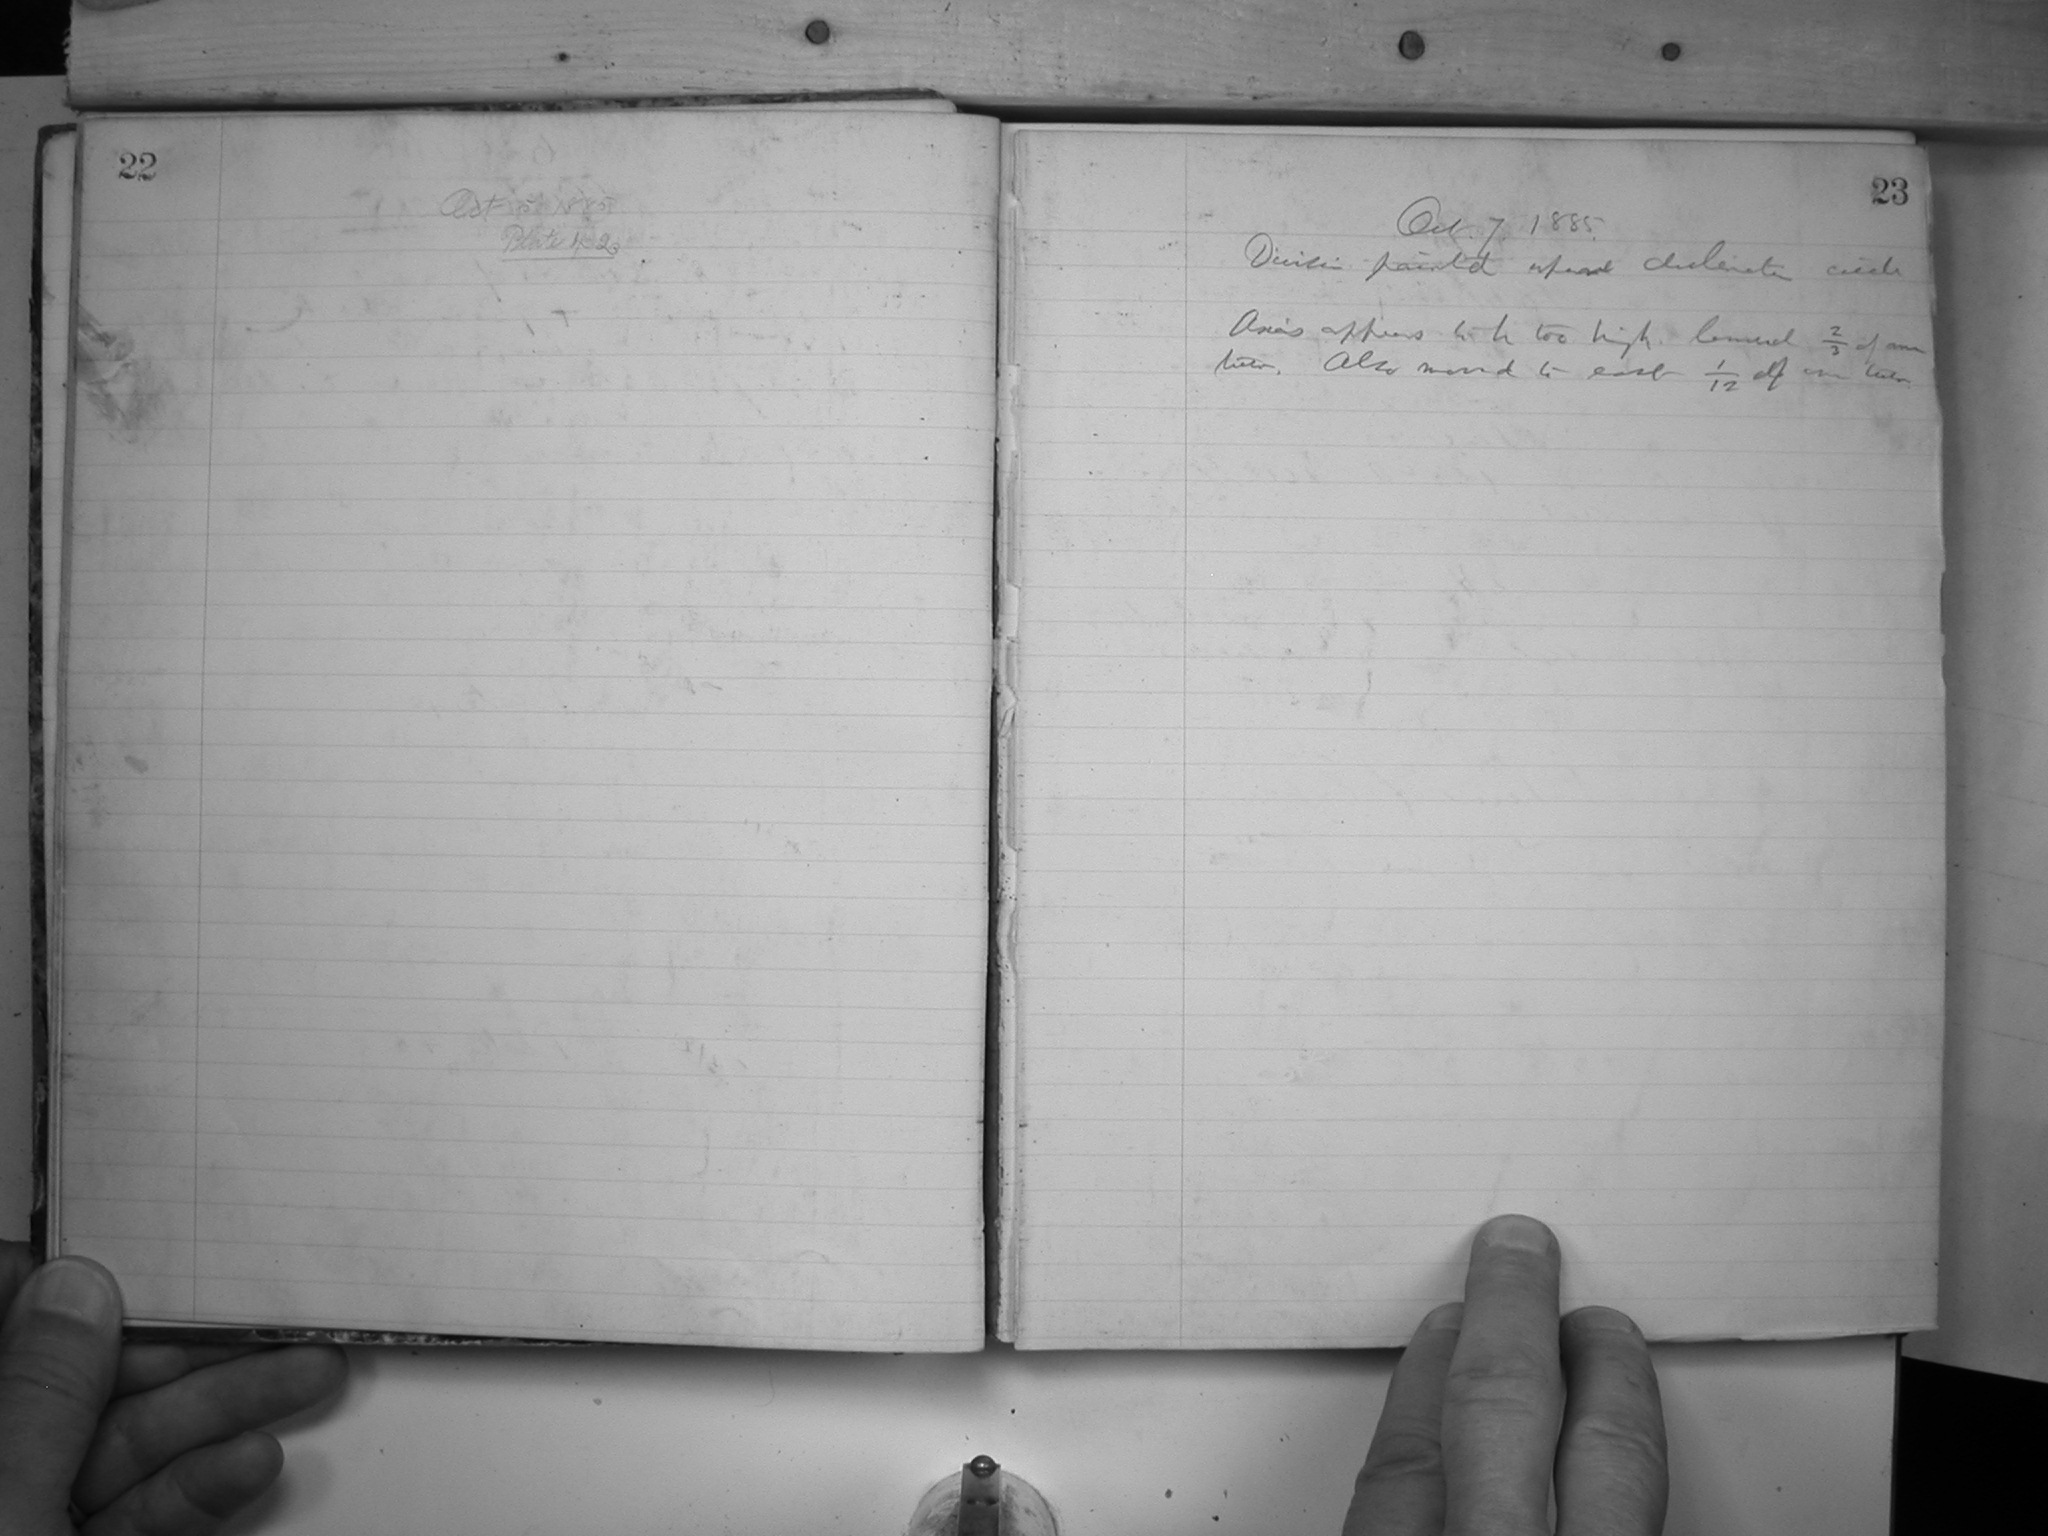 22
Oct 5 1885
Plate 423
23
Oct. 7, 1885.
Division painted upon declination circle
Axis appears to be too high. lowered 2/3 of one
turn. Also moved to east 1/12 of one turn